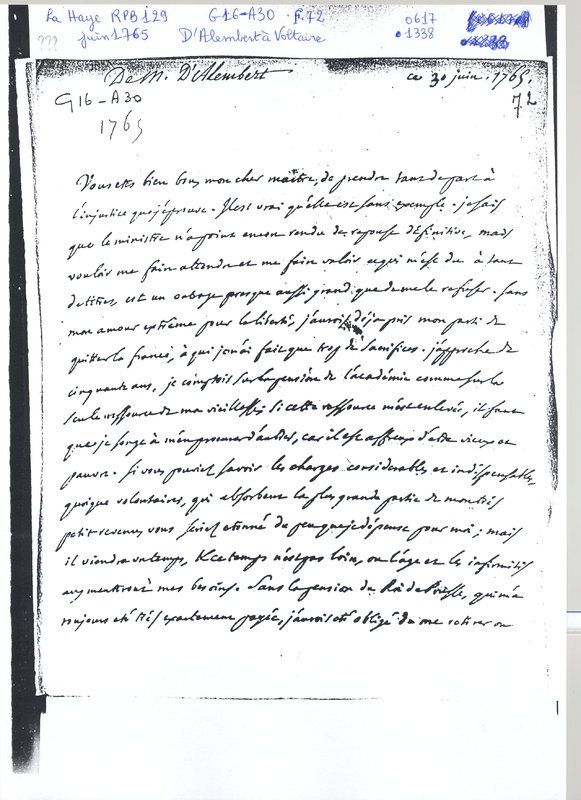 La Haye RPB 129 G16-A30 f.72 0617
??? juin 1765 D'Alembert à Voltaire 1338
De M. D'Alembert ce 30 juin. 1765.
G16-A30 72
1765
Vous etes bien bon, mon cher maître, de prendre tant de part à
l'injustice que j'éprouve. Il est vrai qu'elle est sans exemple. je sais
que le ministre n'a point encore rendu de reponse définitive, mais
vouloir me faire attendre et me faire valoir ce qui m'est du à tant
de titres, est un outrage presque aussi grand que de me le refuser. Sans
mon amour extrême pour la liberté, j'aurois déja pris mon parti de
quitter la france, à qui je n'ai fait que trop de sacrifices. j'approche de
cinquante ans, je comptois sur la pension de l'académie comme sur la
seule ressource de ma vieillesse, si cette ressource m'est enlevée, il faut
que je songe à m'en procurer d'autres, car il est affreux d'etre vieux et
pauvre. si vous pouviez savoir les charges considerables et indispensables,
quoique volontaires, qui absorbent la plus grande partie de mon très
petit revenu, vous seriez etonné du peu que je dépense pour moi; mais
il viendra un temps, & ce temps n'est pas loin, ou l'âge et les infirmités
augmenteront mes besoins. Sans la pension du Roi de Prusse, qui m'a
toujours été très exactement payée, j'aurois été obligé de me retirer ou